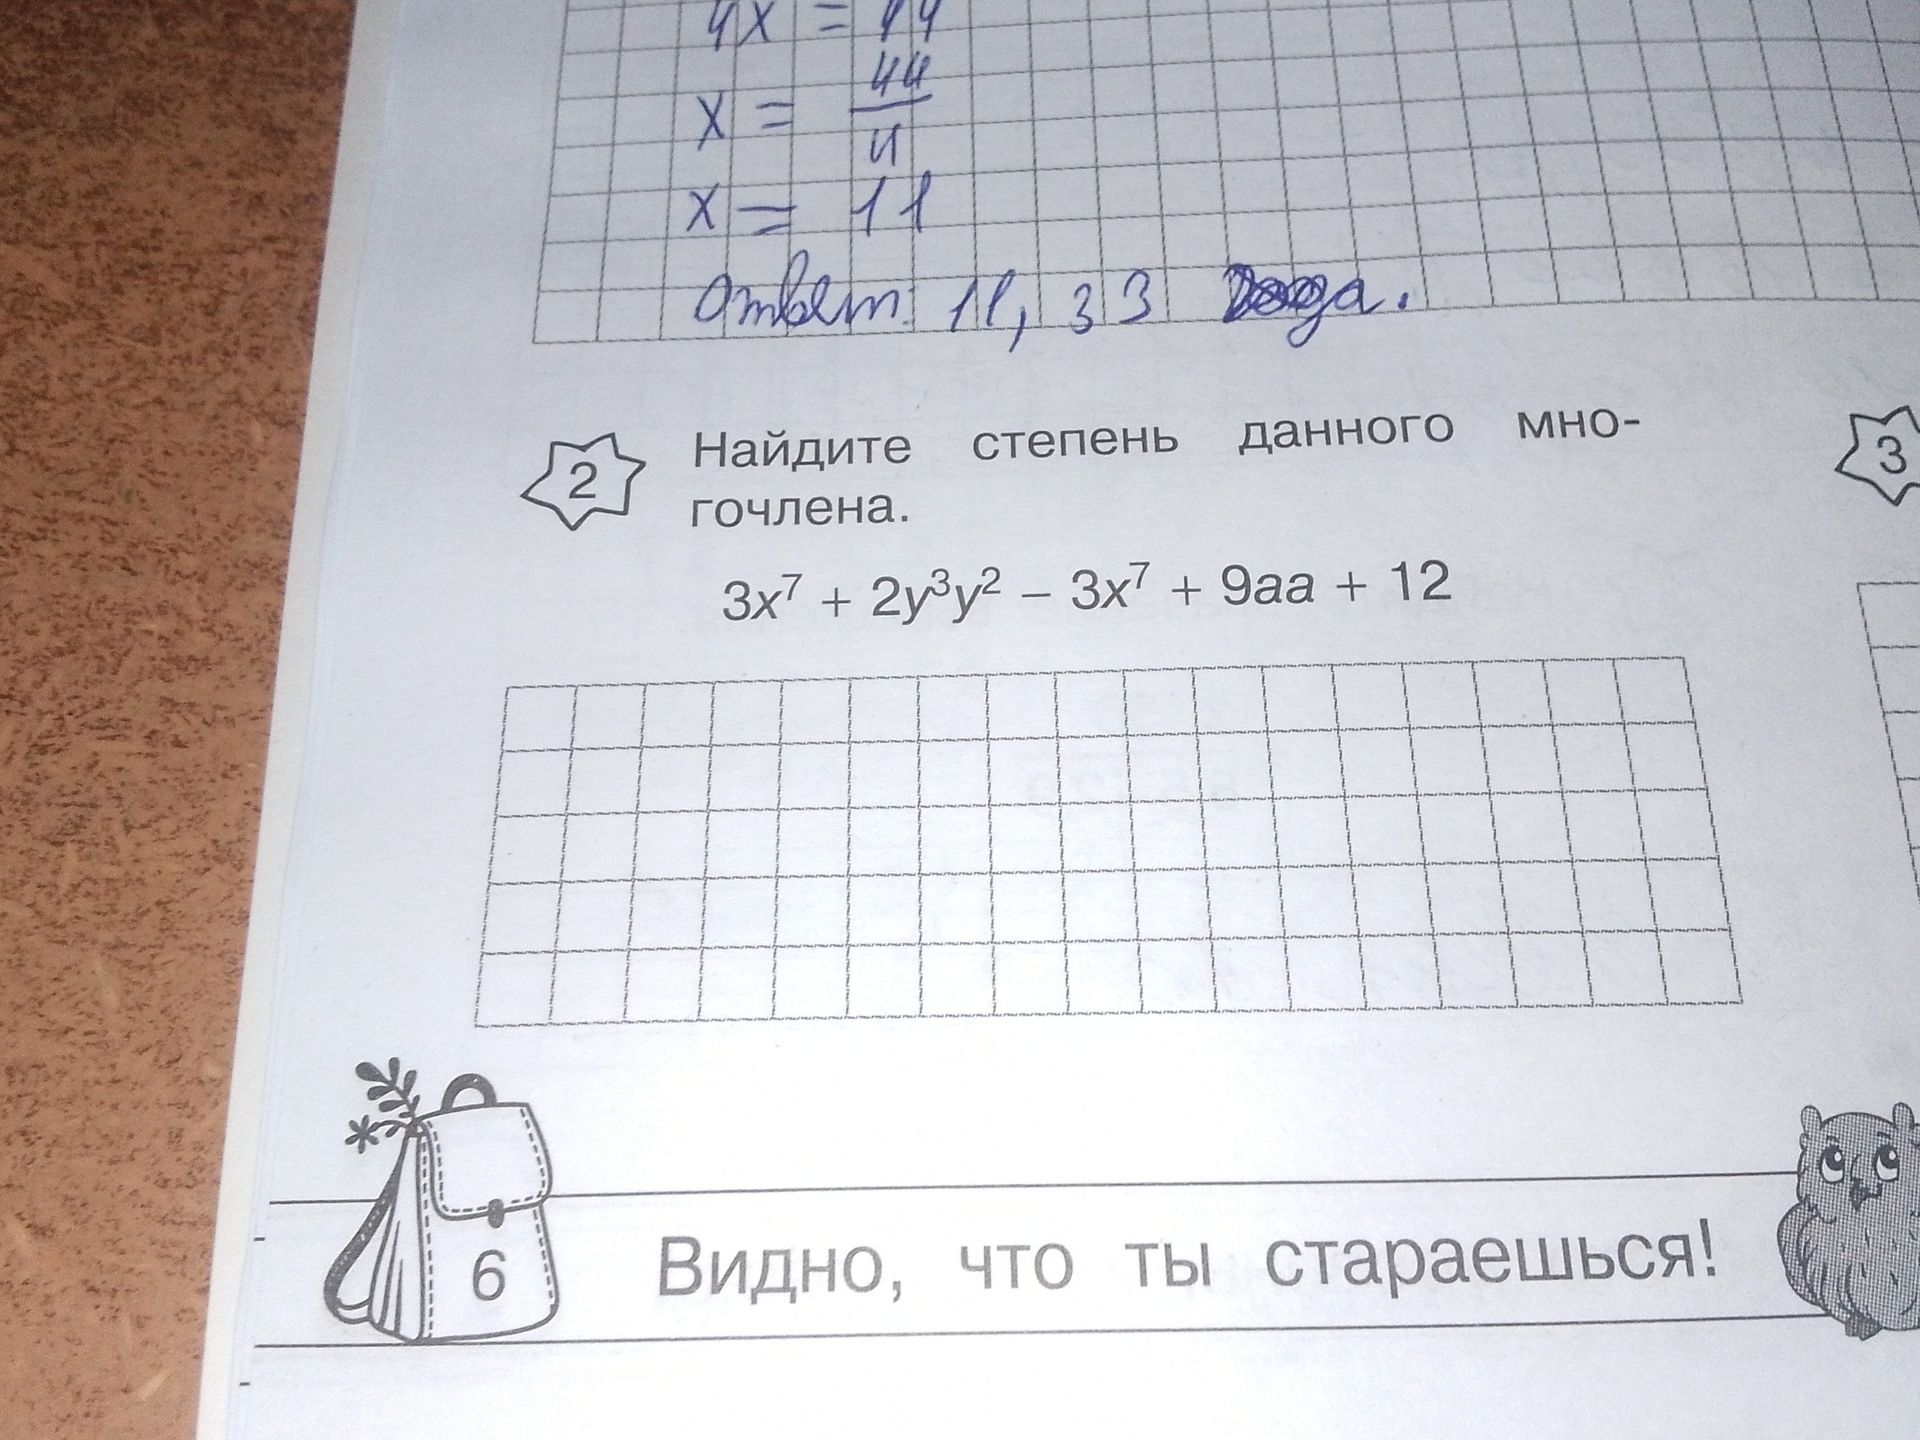 4x = 44
x = 44/4
x = 11
Ответ: 11, 33 года.
2 Найдите степень данного мно-
гочлена.
3
3x⁷ + 2y³y² – 3x⁷ + 9aa + 12
6 Видно, что ты стараешься!